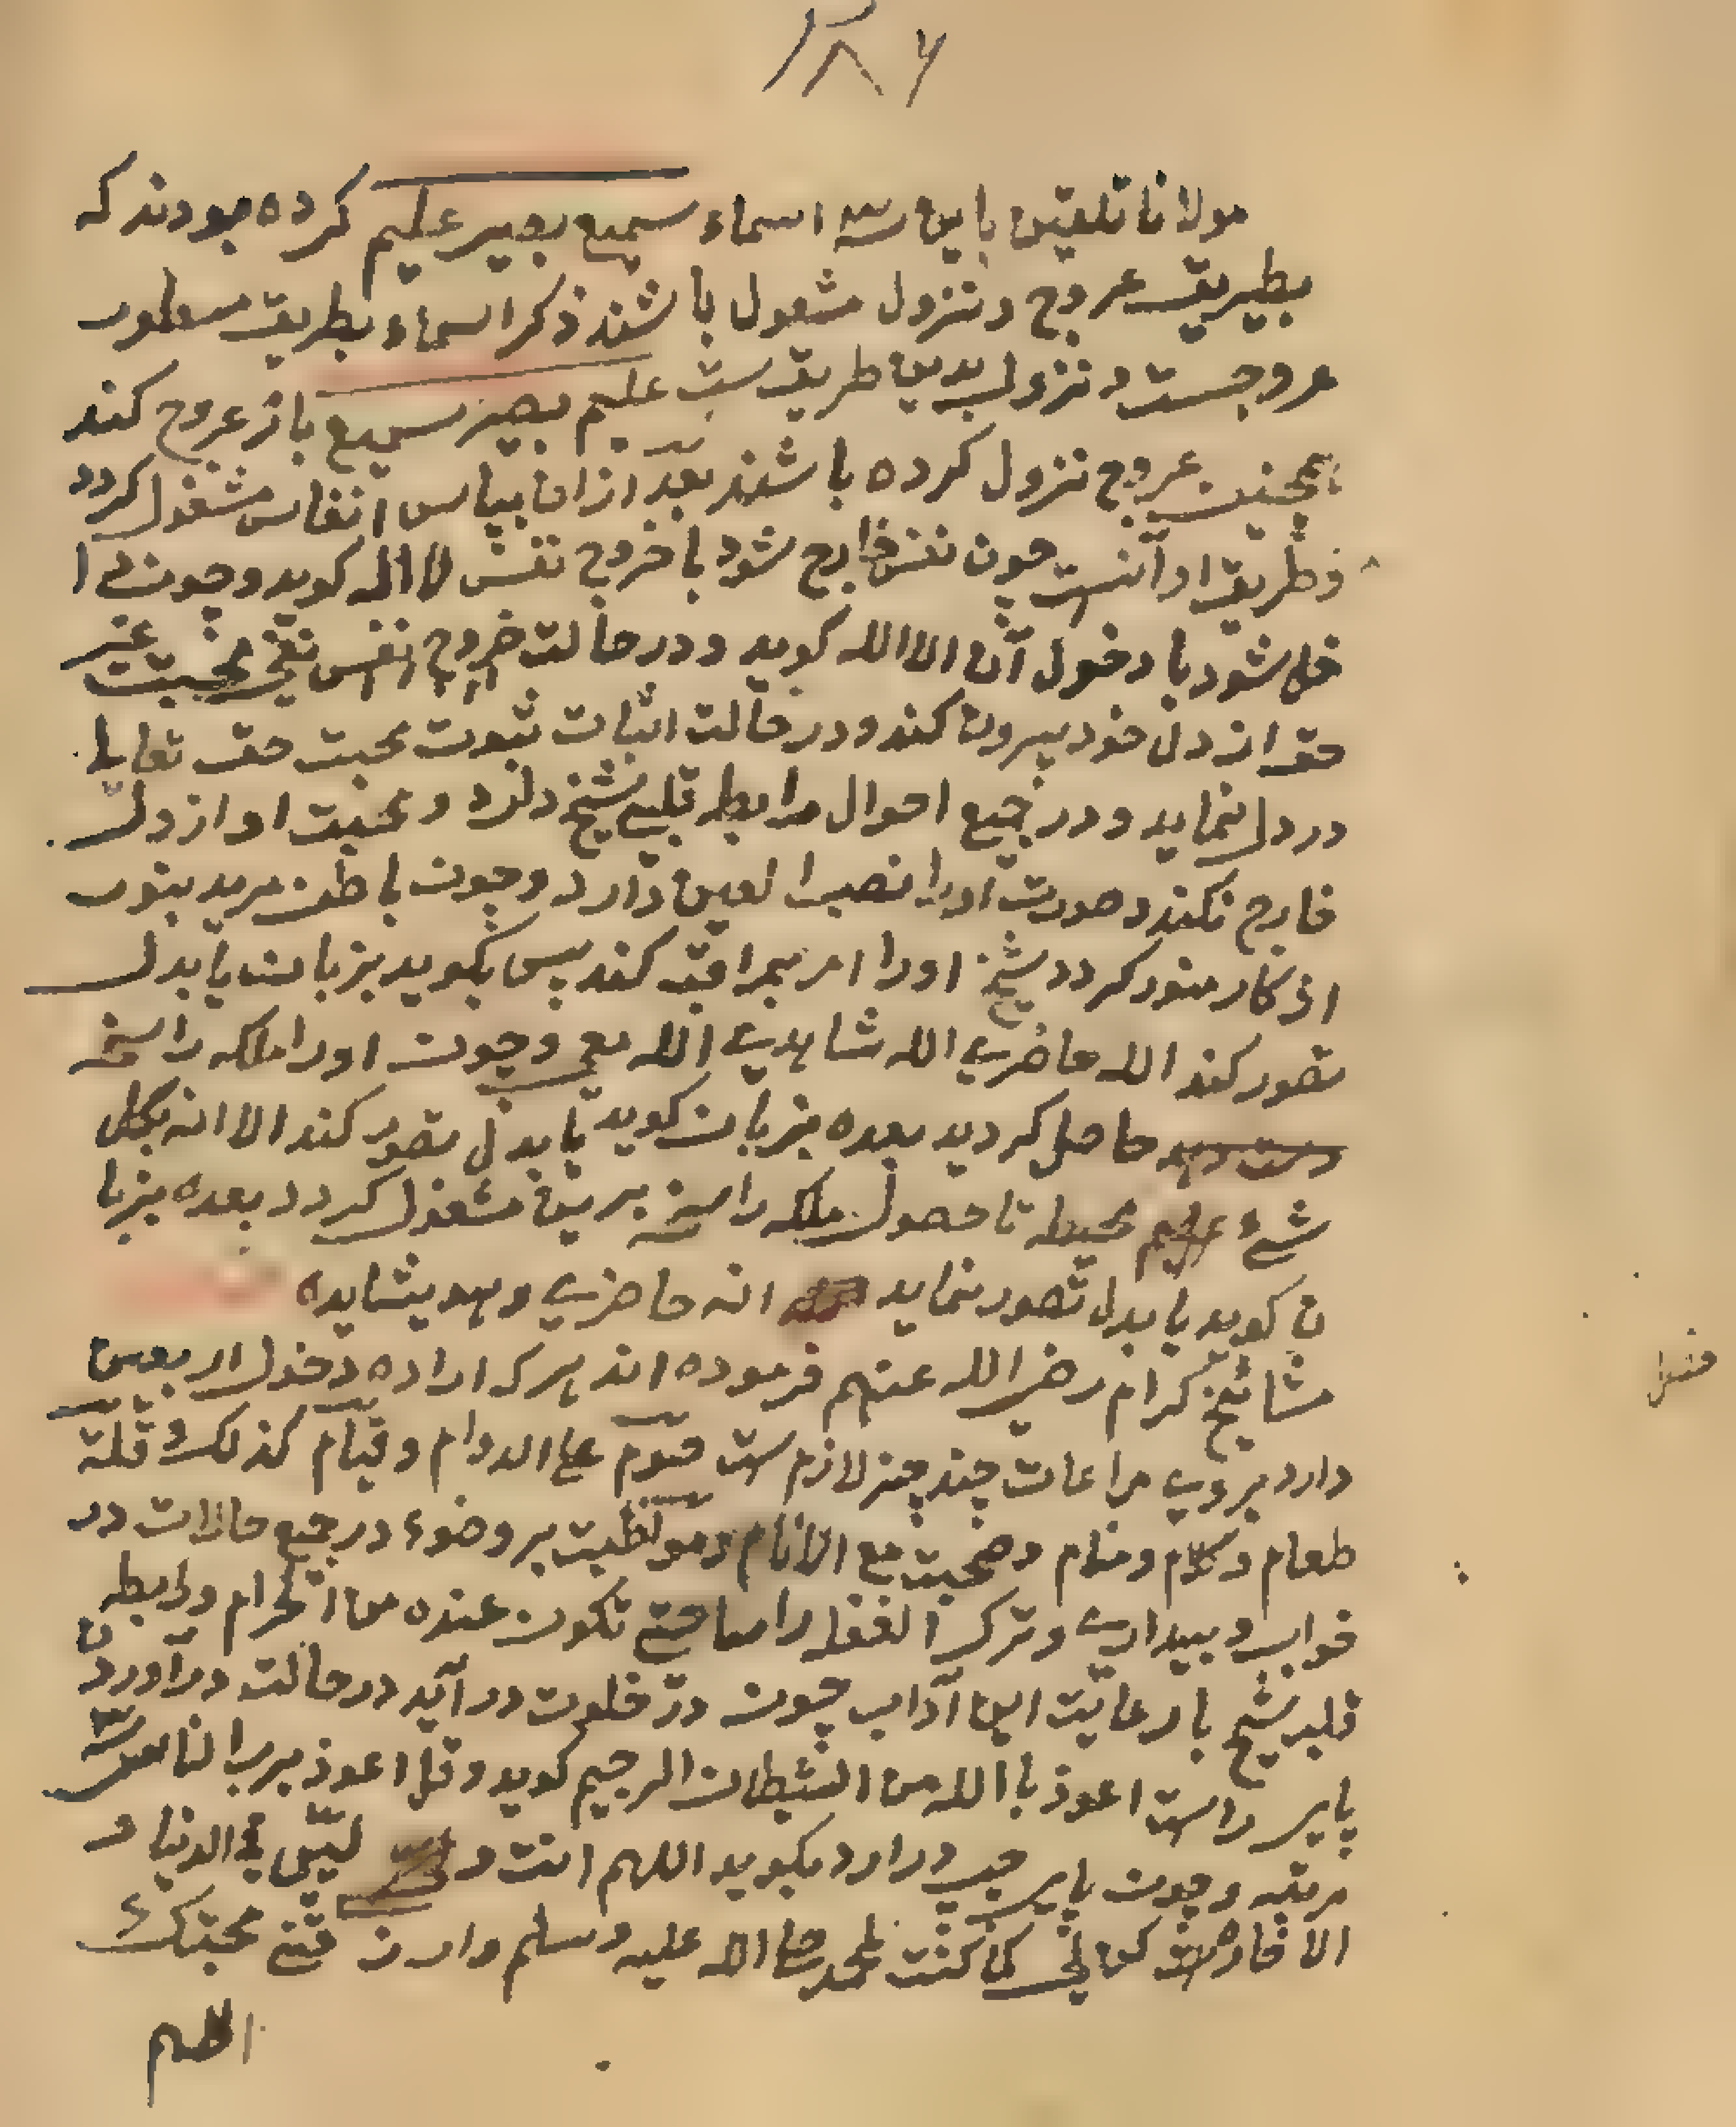 ۱۸۶
مولانا تلقین باین سه اسماء سمیع بصیر علیم کرده بودند که
بطیریق عروج و نزول مشعول باشند ذکر اسماء بطریق مسطور
عروجست و نزول بدین طریق ست علیم بصیر سمیع باز عروج کند
همچنین عروج نزول کرده باشند بعد ازان بپاس انفاس مشغول کردد
و طریق او آنست چون نفس خارج شود با خروج نفس لا اله کوید و چون دا
خل شود با دخول آن الا الله کوید و در حالت خروج نفس نفی محبت غیر
حق از دل خود بیرون کند و در حالت اثبات ثبوت محبت حق تعالی
در دل نماید و در جمیع احوال رابطه قلبی شیخ دارد و محبت او از دل
خارج نکند و صورت اورا نصب العین دارد و چون باطن مرید بنور
اذکار منور کردد شیخ اورا امر بمراقبه کند پس بکوید بزبان یا بدل
تصور کند الله حاضری الله شاهدی الله معی و چون اورا ملکه راسخه
حاصل کردید بعده بزبان کوید یا بدل تصور کند الا انه بکل
شیء علیم محیط تا حصول ملکه راسخه برین مشغول کردد بعده بزبا
ن کوید یا بدل تصور نماید انه حاضری و هو یشاهده
مشائیخ کرام رضی الله عنهم فرموده اند هرکه اراده دخول اربعین
دارد بروی مراعات چند چیز لازم ست صوم علی الدوام و قیام کذلک و قلة
طعام و کلام و منام و صحبت مع الانام و مواظبت بر وضوء در جمیع حالات در
خواب و بیداری و ترک الغفلة راسا حتی تکون عنده من الحرام و رابطه
قلب شیخ با رعایت این آداب چون در خلوت در آید در حالت درآوردن
پای راست اعوذ باالله من الشیطان الرجیم کوید و قل اعوذ برب الناس سه
مرتبه و چون پای چپ درارد بکوید اللهم انت و لیّی فی الدنیا و
الاخرة کن لی کما کنت لمحمد صلی الله علیه وسلم وارزقنی محبتک
اللهم
مشغول